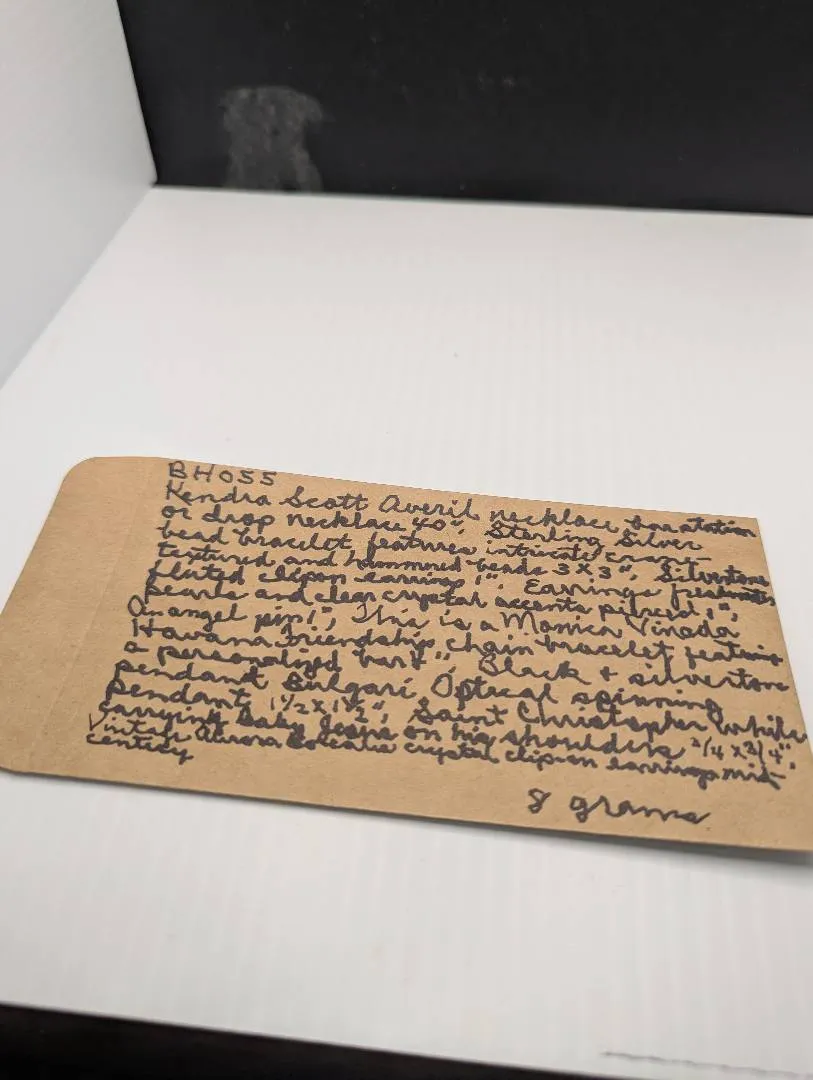 BH055
Kendra Scott Averil necklace baratation
or drop necklace 40", Sterling Silver
bead bracelet features intricate
textured and hammered beads 3x3", Silvertone
fluted clipon earrings 1", Earrings freshwater
pearls and clear crystal accents pierced 1",
An angel pin 1", This is a Monica Vinada
Havana Friendship chain bracelet featuring
a personalized bar 4", Black + silvertone
pendant Bulgari Optical spinning
pendant 1 1/2 x 1 1/2", Saint Christopher while
carrying baby Jesus on his shoulders 3/4 x 3/4",
Vintage Aurora Borealis crystal clip-on earrings mid-
century
8 grams